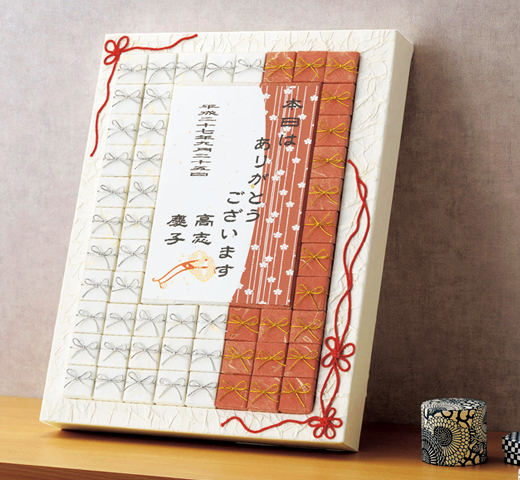 本日は
ありがとう
ございます
高志
慶子
平成二十七年九月二十五日